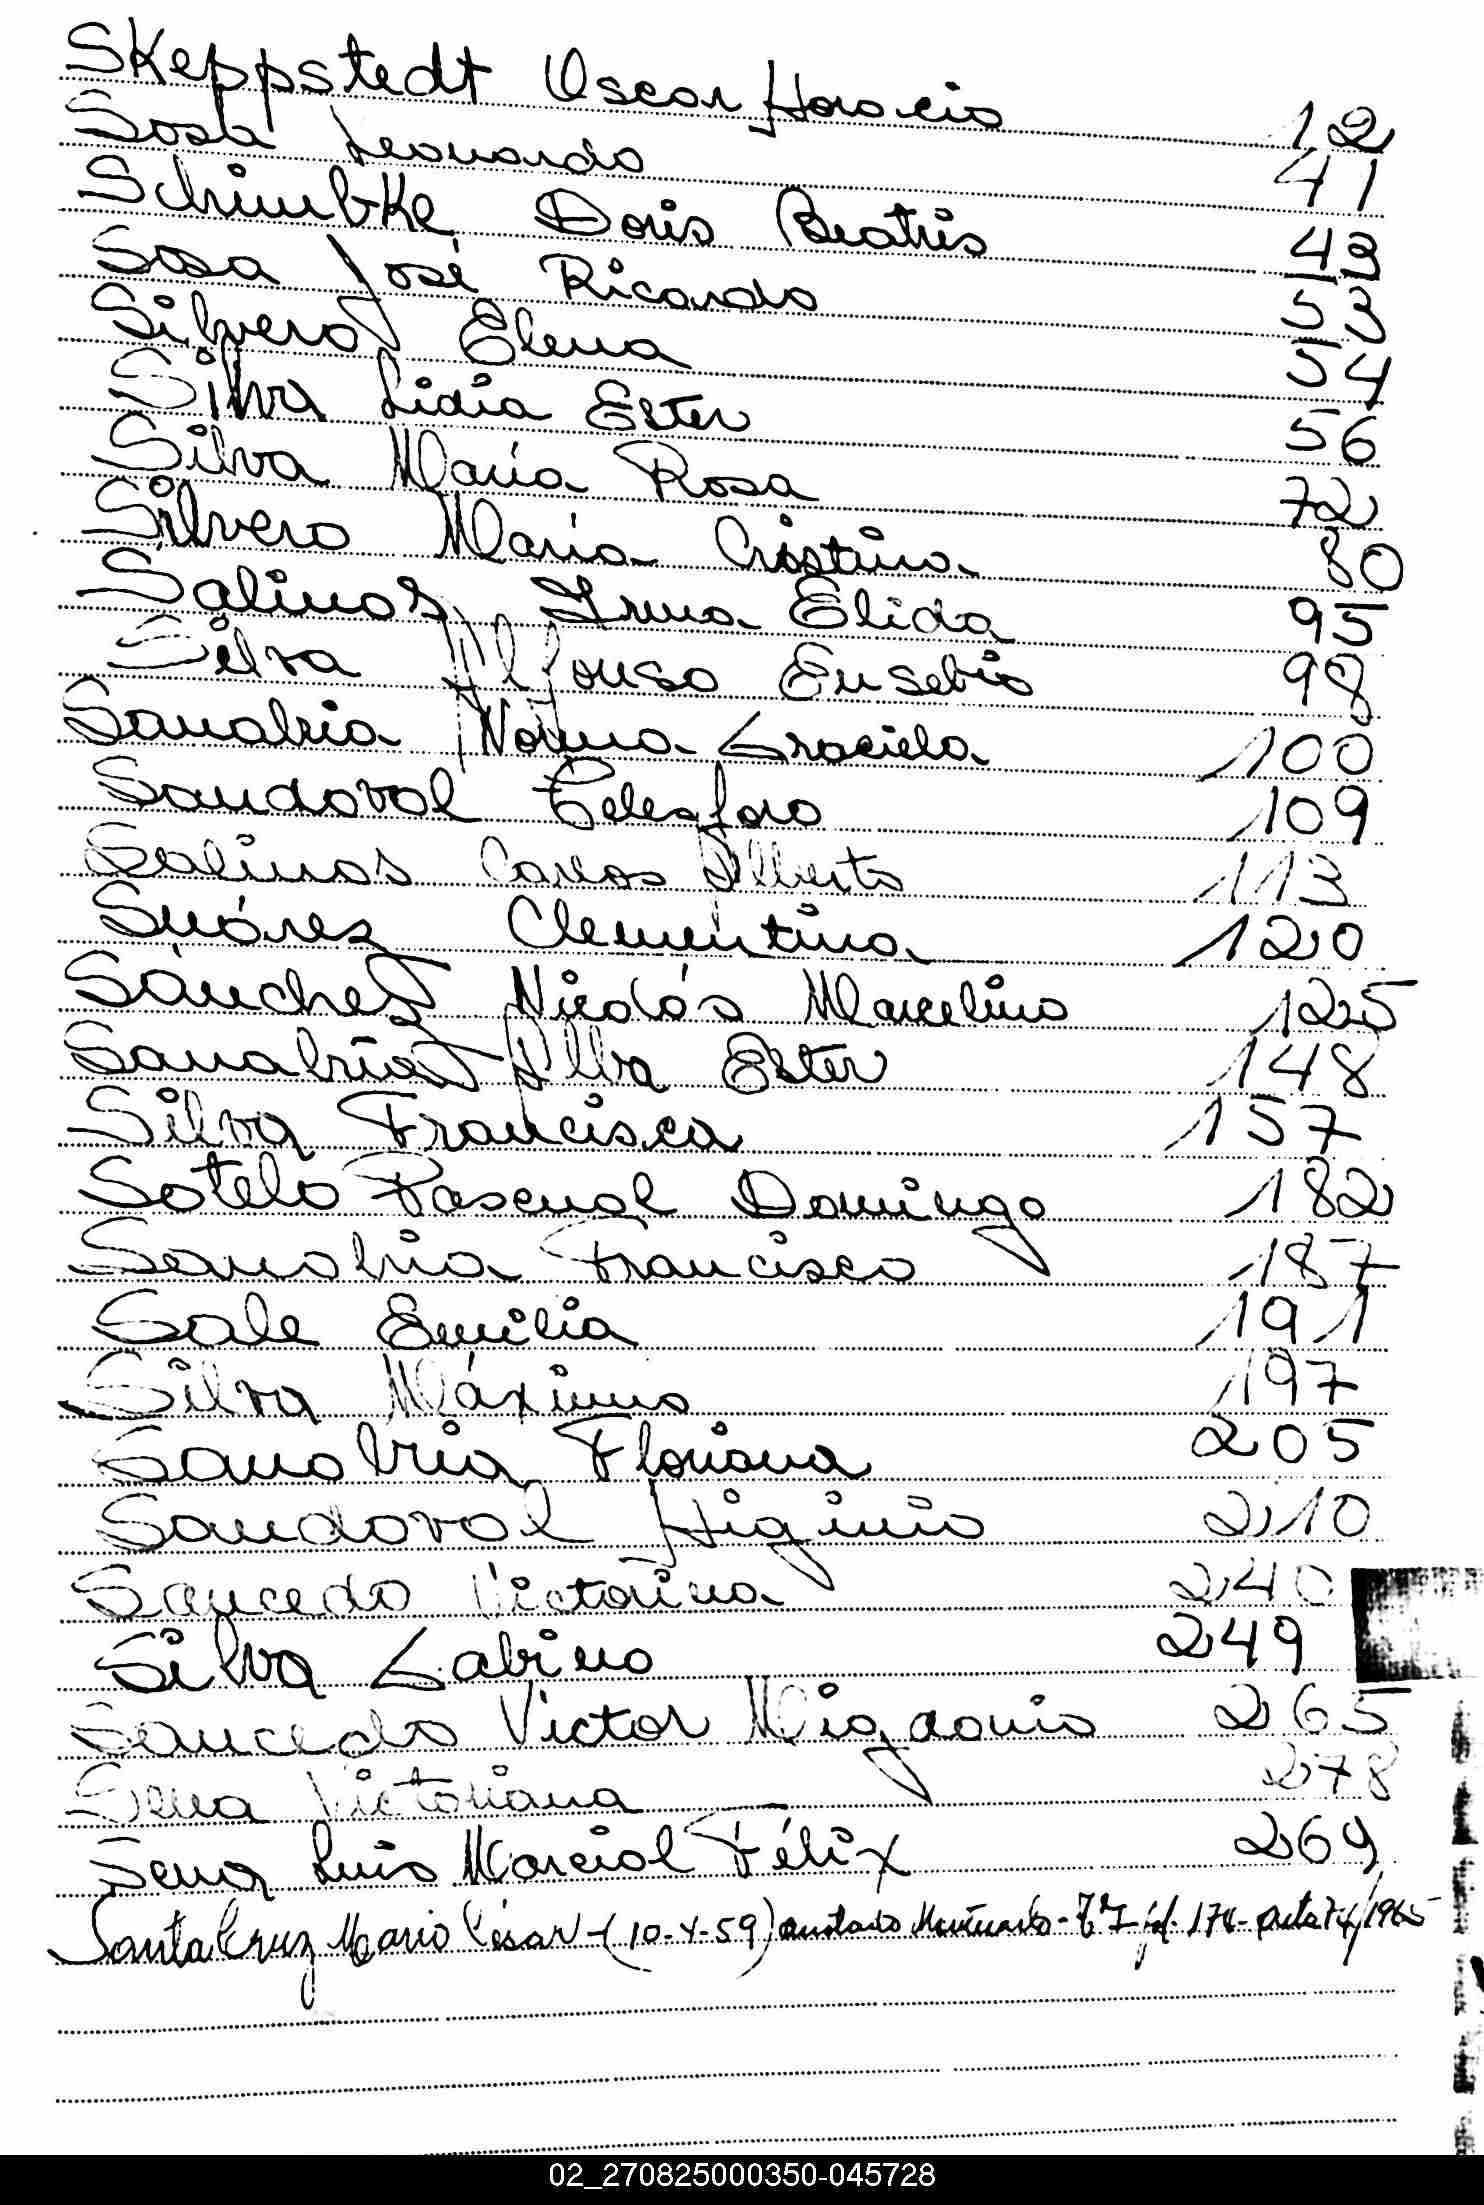 Skeppstedt Oscar Horacio 12
Sosa Leonardo 41
Schimbke Doris Beatris 43
Sosa José Ricardo 53
Silvero Elena 54
Silva Lidia Ester 56
Silva María Rosa 72
Silvero María Cristina 80
Salinas Irma Elida 95
Silva Alfonso Eusebio 98
Sanabria Norma Graciela 100
Sandoval Telesforo 109
Salinas Carlos Alberto 113
Suárez Clementina 120
Sánchez Nicolás Marcelino 125
Sanabria Alba Ester 148
Silva Francisca 157
Sotelo Pascual Domingo 182
Sanabria Francisco 187
Sale Emilia 191
Silva Máximo 197
Sanabria Floriana 205
Sandoval Higinio 210
Saucedo Victorina 240
Silva Gabino 249
Saucedo Victor Migdonio 265
Sena Victoriana 278
Sena Luis Marcial Félix 269
Santa Cruz Mario César - (10-4-59) anotado - Tº I - fol. 174 - acta 74/1965
02_270825000350-045728